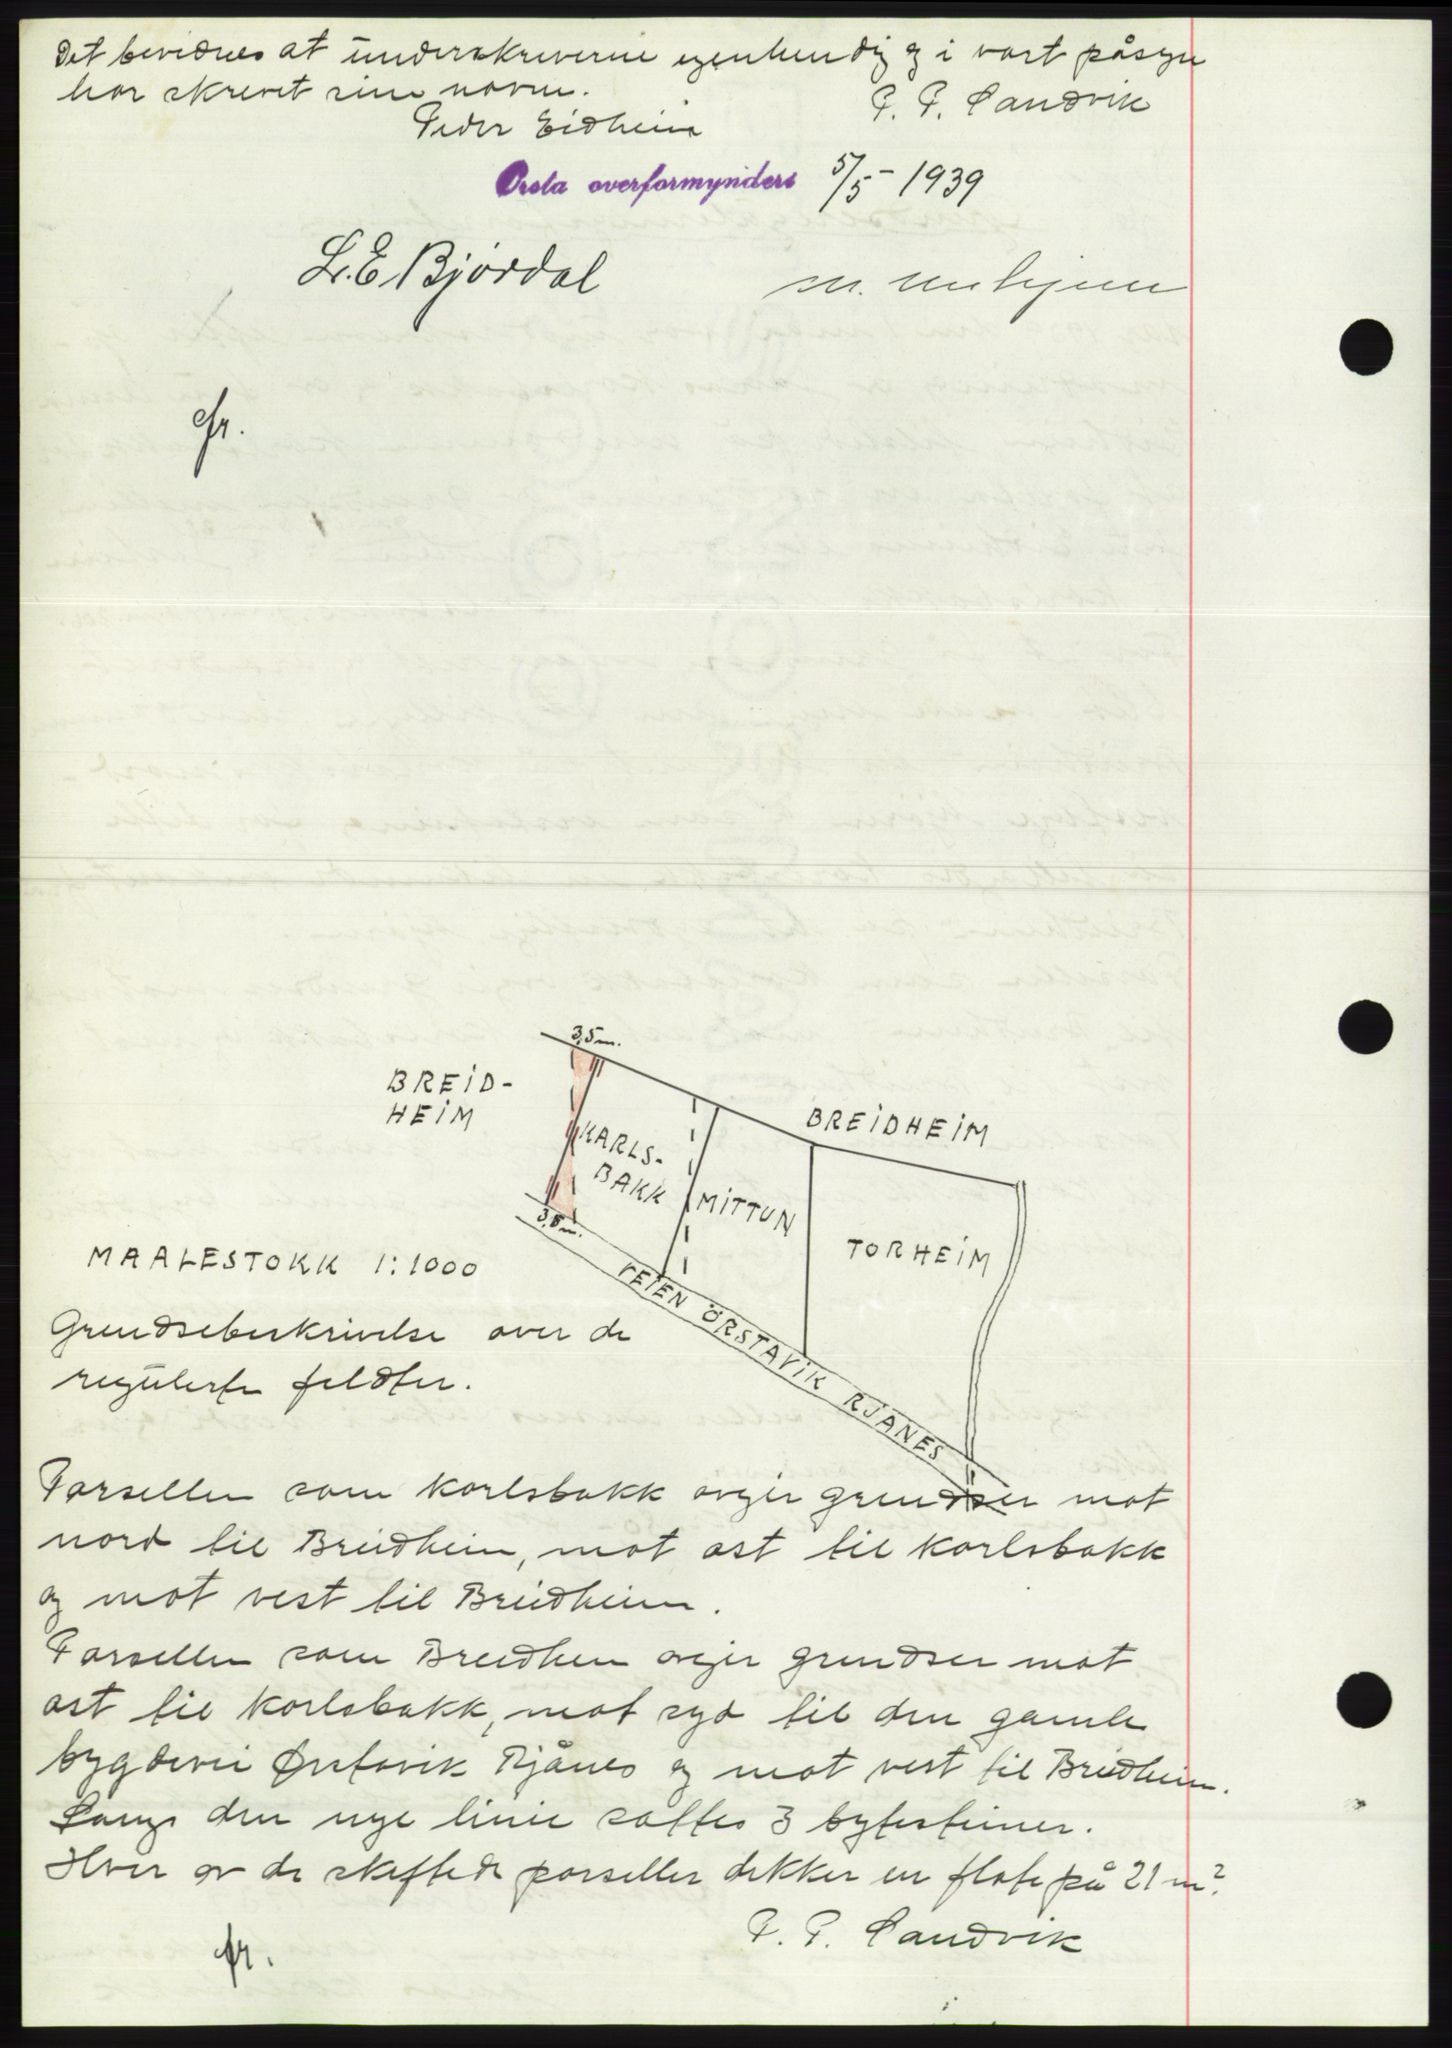 Det bevidnes at underskriverne egenhendig og i vort påsyn
har skrevet sine navn.
P. P. Sandvik
Peder Eidheim
Ørsta overformynderi 5/5 - 1939
L. E Bjørdal
M.
fr.
3,5 m.
BREID-
HEIM
BREIDHEIM
KARLS-
BAKK
MITTUN
TORHEIM
3,5 m.
MAALESTOKK 1:1000
VEIEN ÖRSTAVIK RJÅNES
Grendsebeskrivelse over de
regulerte feldter.
Parsellen som Karlsbakk avgir grendser mot
nord til Breidheim, mot øst til Karlsbakk
og mot vest til Breidheim.
Parsellen som Breidheim avgir grendser mot
øst til Karlsbakk, mot syd til den gamle
bygdevei Ørstavik Rjånes og mot vest til Breidheim.
Langs den nye linie sattes 3 bytesteiner.
Hver av de skiftede parseller dekker en flate på 21 m².
P. P. Sandvik
fr.